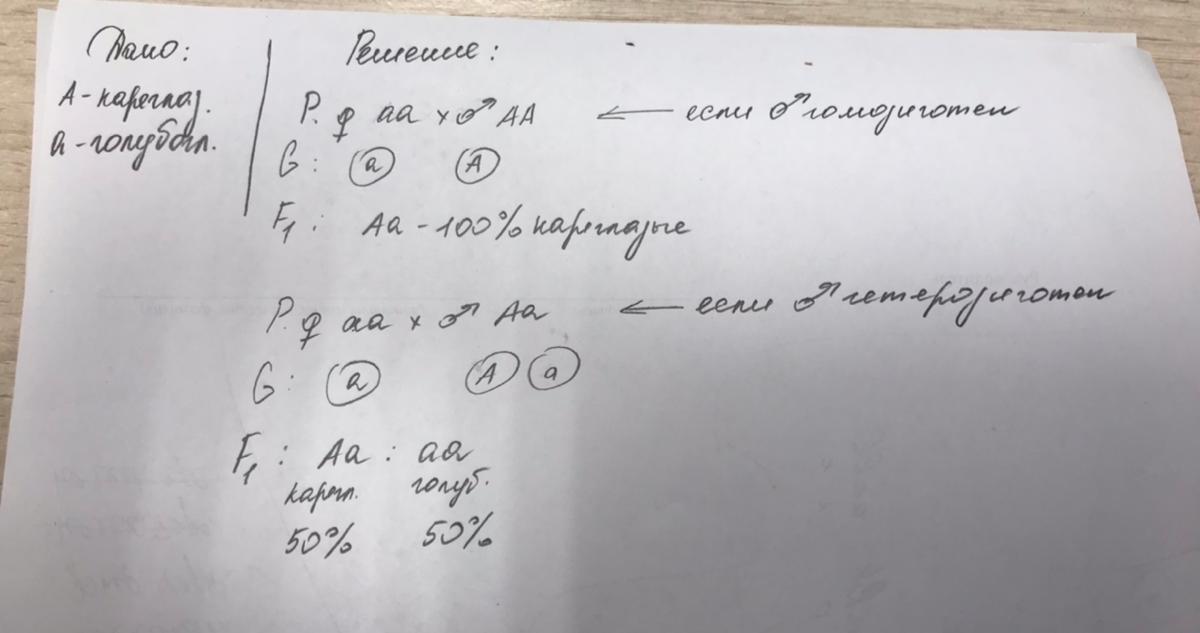 Дано:
А - кареглаз.
а - голубогл.
Решение:
P. ♀ aa × ♂ AA ← если ♂ гомозиготен
G: a A
F1: Aa - 100% кареглазые
P. ♀ aa × ♂ Aa ← если ♂ гетерозиготен
G: a A a
F1: Aa : aa
карегл. голуб.
50% 50%